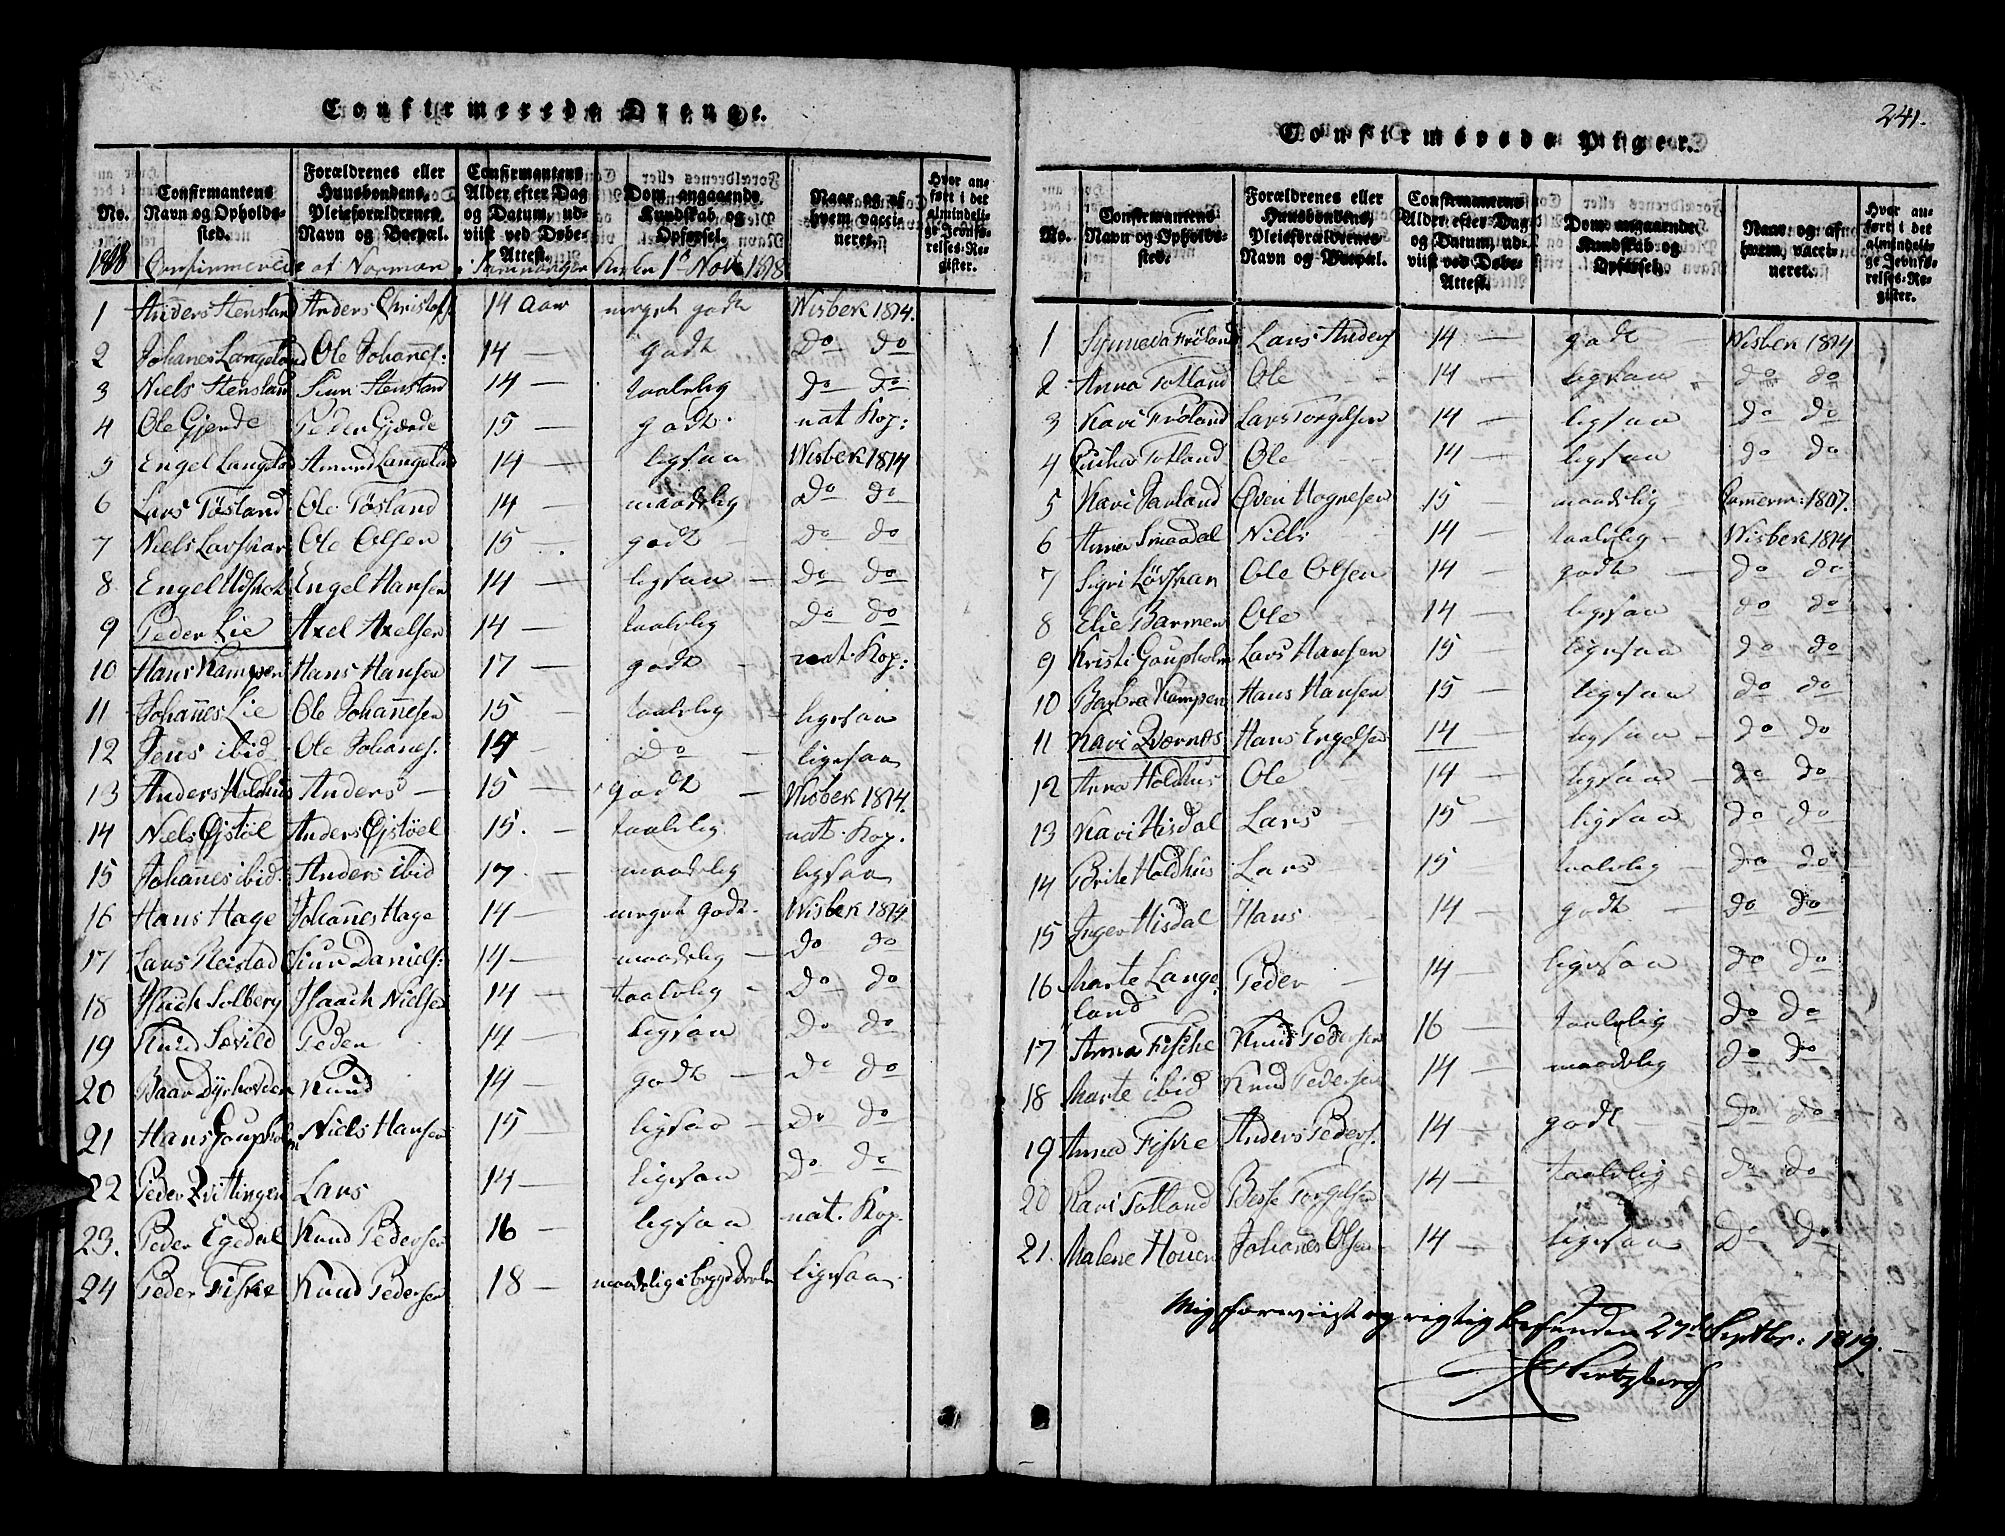 Confirmerede Drenge.
No.
Confirmantens Navn og Opholds-sted.
Forældrenes eller Huusbondens, Pleieforældrenes Navn og Borpæl.
Confirmantens Alder efter Dag og Datum, ud-viist ved Døbe-Attest.
Dom angaaende Kundskab og Opførsel.
Naar og af hvem vacci-neret.
Hvor an-ført i det almindeli-ge Jevnfø-relses-Re-gister.
1818 Confirmerede af Norman i Kirken 1ste Nov 1818
1 Anders Stensland Anders Christofs 14 Aar meget godt Wisbek 1814.
2 Johanes Langeland Ole Johanes: 14 — godt Do Do
3 Niels Stensland Siur Stensland 14 — taalelig do do
4 Ole Gjerde Peder Gjerde 15 — godt nat Kop:
5 Engel Langeland Amund Langeland 14 — ligesaa Wisbek 1814
6 Lars Tøsland Ole Tøsland 14 — maadelig Do Do
7 Niels Løvskar Ole Olsen 15 — godt — Do Do
8 Engel Engel Hansen 14 — ligesaa — Do Do
9 Peder Lie Axel Axelsen 14 — taalelig Do Do
10 Hans Kampen Hans Hansen 17 — godt — nat Kop:
11 Johañes Lie Ole Johañesen 15 — taalelig — ligesaa
12 Jens ibid Ole Johañes. 14 — Do — ligesaa
13 Anders Holdhus Anders — 15 — godt — Wisbek 1814.
14 Niels Gjstøl Anders Gjstøel 15. — taalelig nat. Kop.
15 Johañes ibid. Anders ibid 17. — maadelig ligesaa
16 Hans Hage Johañes Hage 14 — meget godt. Wisbek 1814
17 Lars Reistad Siur Daniels: 14 — maadelig — Do do
18 Haach Solberg Haach Nielsen 14 — taalelig — Do Do
19 Knud Sævild Peder 14 — ligesaa Do do
20 Baar Dyrhovden Knud 14 — godt — Do Do
21 Hans Goupholm Niels Hansen 15 — ligesaa — Do Do
22 Peder Qvittingen Lars 14 — ligesaa Do Do
23. Peder Egedal Knud Pedersen 16 — ligesaa nat. Kop.
24 Peder Fiske Knud Pedersen 18 — maadelig i begge Deele ligesaa
241.
Confirmerede Piger.
No.
Confirmantens Navn og Opholds-sted.
Forældrenes eller Huusbondens, Pleieforældrenes Navn og Borpæl.
Confirmantens Alder efter Dag og Datum, ud-viist ved Døbe-Attest.
Dom angaaende Kundskab og Opførsel.
Naar og af hvem vacci-neret.
Hvor an-ført i det almindeli-ge Jevnfø-relses-Re-gister.
1 Synneva Frøland Lars Anders 14 — godt — Wisbek 1814
2 Anna Totland Ole — 14 — ligesaa do do
3 Kari Frøland Lars Torgelsen 14 — ligesaa Do Do
4 Totland Ole — 14 — ligesaa Do Do
5 Kari Øven Hognesen 15 maadelig 1807.
6 Anna Smaadal Niels 14 — taalelig — Wisbek 1814
7 Sigri Løvskar Ole Olsen 14 — godt — Do do
8 Elie Barmen Ole — 14 — ligesaa Do Do
9 Kristi Goupholm Lars Hansen 15 — ligesaa Do Do
10 Barbra Kampen Hans Hansen 15 — ligesaa Do Do
11 Kari Qværnes Hans Engelsen 14 — ligesaa — Do Do
12 Anna Holdhus Ole 14 — ligesaa — Do Do
13 Kari Hisdal Lars — 15 — ligesaa Do Do
14 Brite Holdhus Lars 15 — taalelig — Do do
15 Inger Hisdal Hans 14 — godt — Do Do
16 Marte Lange-land Peder — 14 — ligesaa Do Do
17 Anna Fiske Knud Pedersen 16 — taalelig Do Do
18 Marte ibid Knud Pedersen 14 — maadelig Do Do
19 Anna Fiske Anders Peders. 14 — godt — Do Do
20 Kari Totland Besse Torgelsen 14 — taalelig Do Do
21. Malene Houen Johanes Olsen 14 — ligesaa Do Do
Mig foreviist og rigtig befunden 27de Septbr: 1819.
Hertzberg